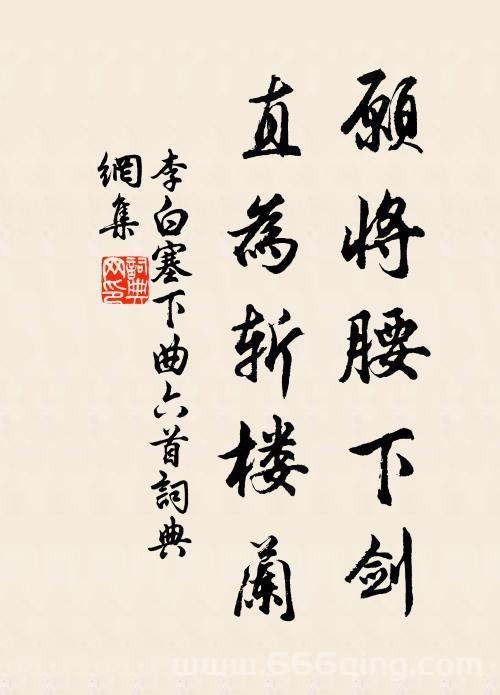 願将腰下剑
直為斩楼蘭
李白塞下曲六首詞典
網集
詞典
网印
www.666qing.com